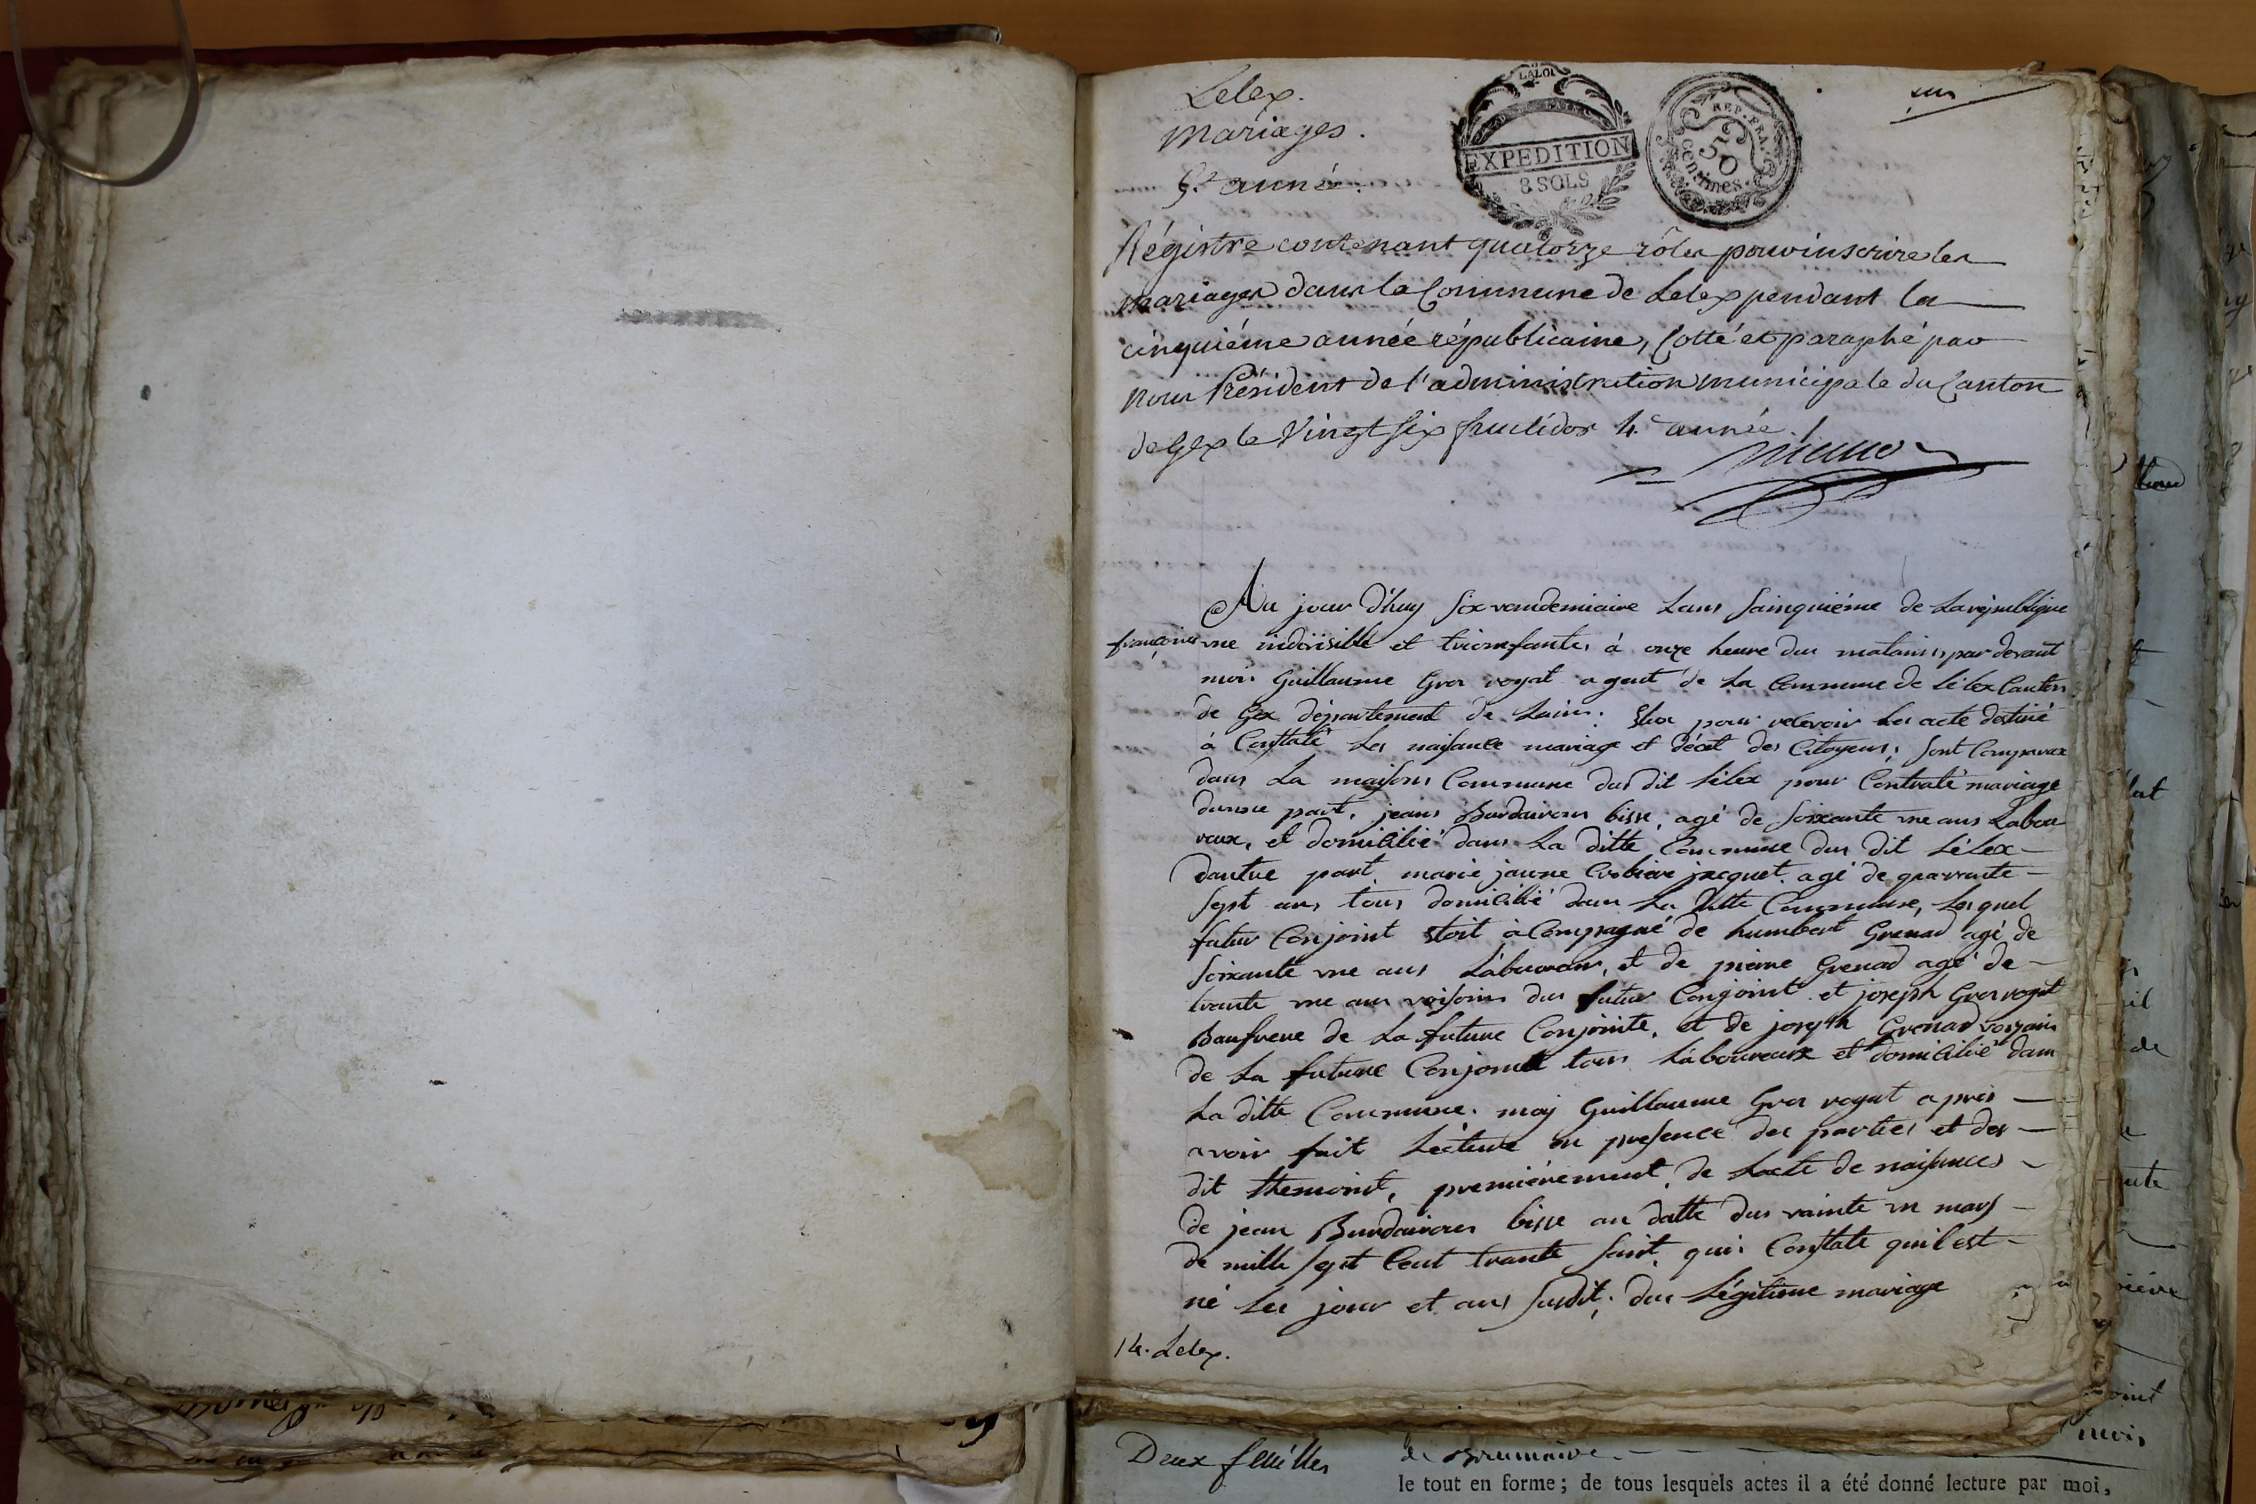 Lelex.
Mariages.
5.e année.
LA LOI
EXPEDITION
8 SOLS
REP. FRA.
50
centimes
un
Régistre contenant quatorze rôles pour inscrire les
mariages dans la Commune de Lelex pendant la
cinquiéme année républicaine, Cotté et paraphé par
nous Président de l'administration municipale du Canton
de Gex le Vingt six fructidor 4.e année.
Au jour d'huy six vandemiaire Lans sainquiéme de La république
françoise une indivisible et triomfante, à onze heure du matains par devant
moi Guillaume Gros voyat agent de La Commune de Lélex Canton
de Gex département de Lain: Elu pour relevoir Les acte destiné
à Constaté Les naisance mariage et décet des Citoyens; sont Comparax
dans La maison Commune du dit Lélex pour Contraté mariage
dunne part, jean Burdairon bisse, agé de soixante une ans Labou
reux, et domicilié dans La ditte Commune du dit Lélex
dautre part, marie janne jacquet agé de quarante
sept ans tous domicilié dans La ditte Commune, Lesquel
futur Conjoint Etoit àCompagné de humbert Grenad agé de
soixante une ans Laboureur, et de pierre Grenad agé de
trante une ans voisin du futur Conjoint et joseph Gros voyat
Baufrere de La future Conjointe, et de joseph Grenad voisain
de La future Conjointe tous Laboureux et domicilié dans
La ditte Commune. moy Guillaume Gros voyat apres
avoir fait Lecture en presence des parties et des
dit themoint, premiérement, de Lacte de naisances
de jean Burdairon bisse au datte du vainte un mars
de mille sept Cent trante saint, qui Constate quil est
né Les jour et ans susdit; du Légitime mariage
14. Lelex.
Deux feuilles
de Brumaire
le tout en forme; de tous lesquels actes il a été donné lecture par moi,